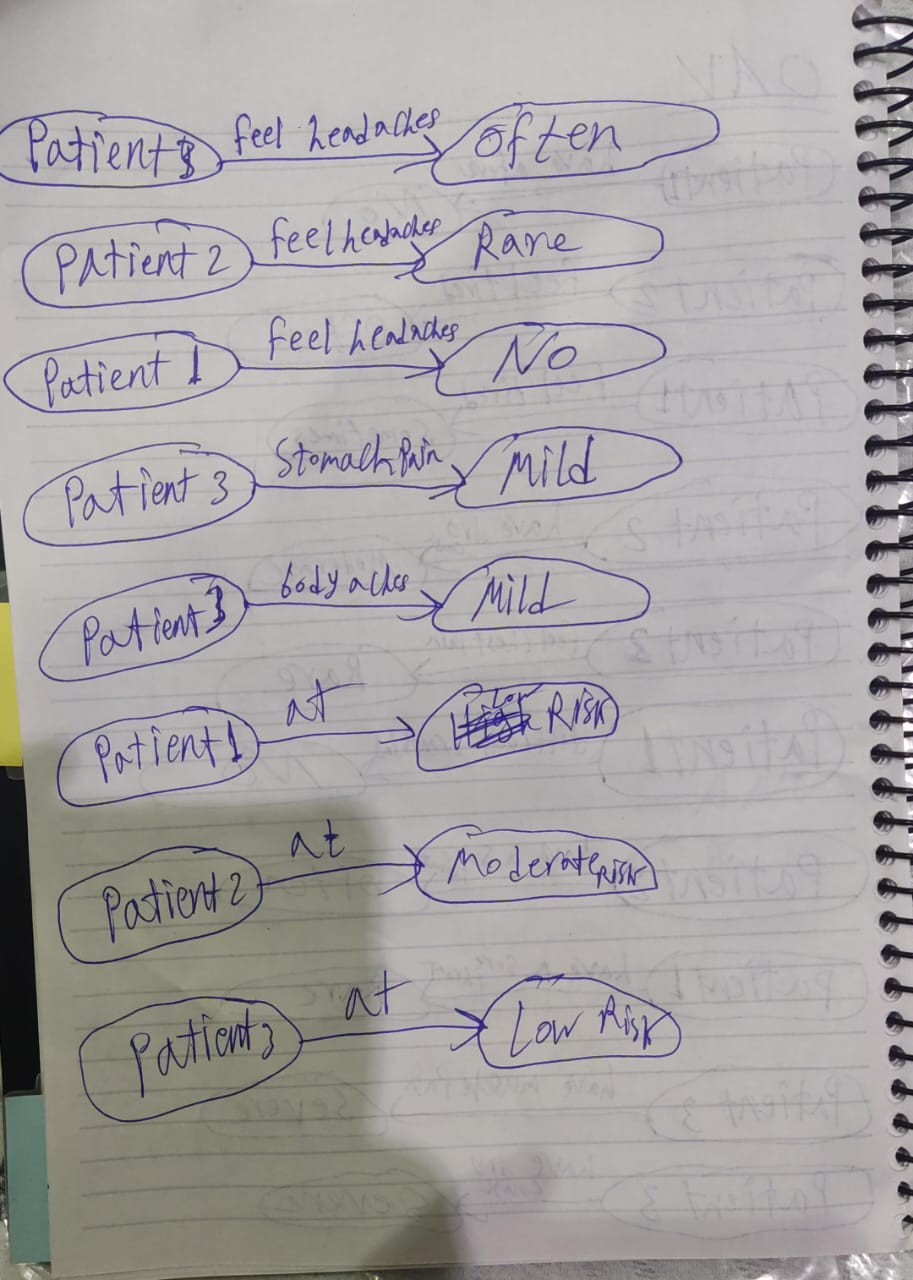 Patient 3 feel headaches often
Patient 2 feel headaches Rare
Patient 1 feel headaches No
Patient 3 Stomach Pain Mild
Patient 3 body aches Mild
Patient 1 at Low Risk
Patient 2 at Moderate Risk
Patient 3 at Low Risk